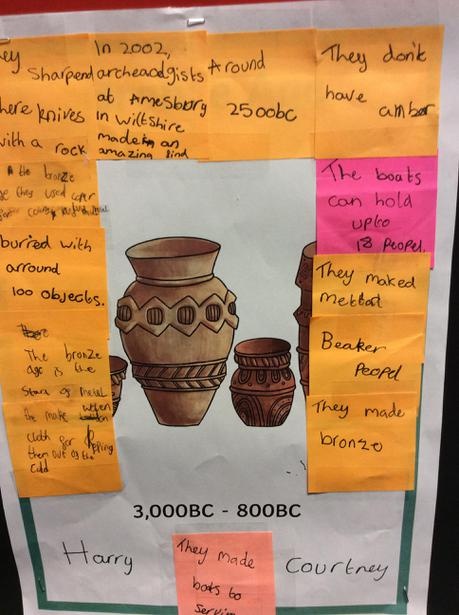 ey
Sharpend
here knives
with a rock
In 2002,
archeaodgists
at Amesbury
in Wiltshire
made an
amazing find
Around
2500bc
They don't
have amber
The boats
can hold
upto
18 peopel.
They maked
Beaker
Peopel
They made
bronze
the bronze
they used
burred with
arround
100 objects.
The bronze
age is the
Start of metal
the make
cloth for
them out of the
3,000BC - 800BC
Harry
They made
boats to
Courtney